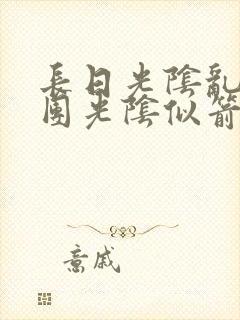 長日光陰亂
團光陰似箭
意戚